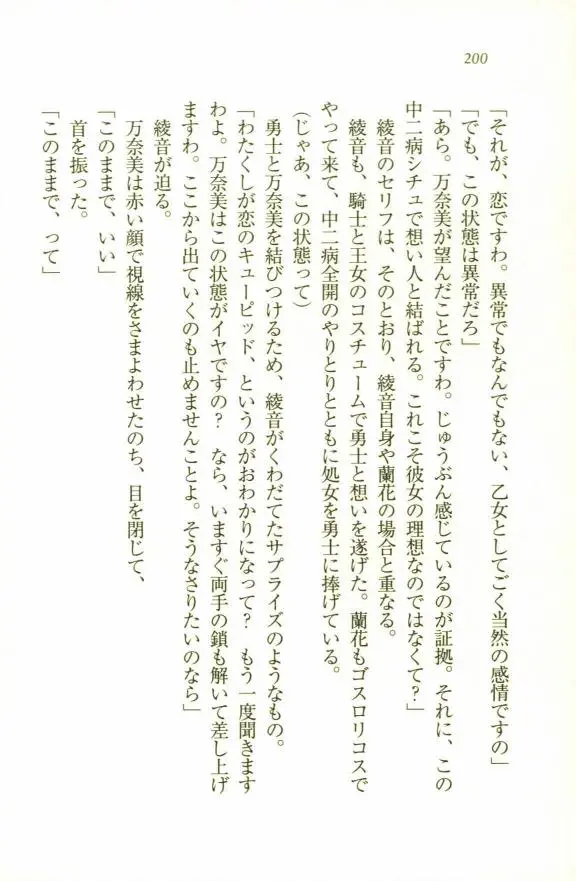 200
「それが、恋ですわ。異常でもなんでもない、乙女としてごく当然の感情ですの」
「でも、この状態は異常だろ」
「あら。万奈美が望んだことですわ。じゅうぶん感じているのが証拠。それに、この
中二病シチュで想い人と結ばれる。これこそ彼女の理想なのではなくて？」
綾音のセリフは、そのとおり、綾音自身や蘭花の場合と重なる。
綾音も、騎士と王女のコスチュームで勇士と想いを遂げた。蘭花もゴスロリコスで
やって来て、中二病全開のやりとりとともに処女を勇士に捧げている。
（じゃあ、この状態って）
勇士と万奈美を結びつけるため、綾音がくわだてたサプライズのようなもの。
「わたくしが恋のキューピッド、というのがおわかりになって？　もう一度聞きます
わよ。万奈美はこの状態がイヤですの？　なら、いますぐ両手の鎖も解いて差し上げ
ますわ。ここから出ていくのも止めませんことよ。そうなさりたいのなら」
綾音が迫る。
万奈美は赤い顔で視線をさまよわせたのち、目を閉じて、
「このままで、いい」
首を振った。
「このままで、って」